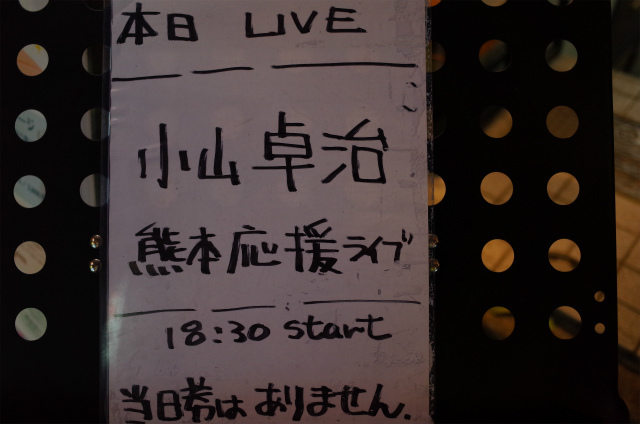 本日 LIVE
小山卓治
熊本応援ライブ
18:30 start
当日券はありません.